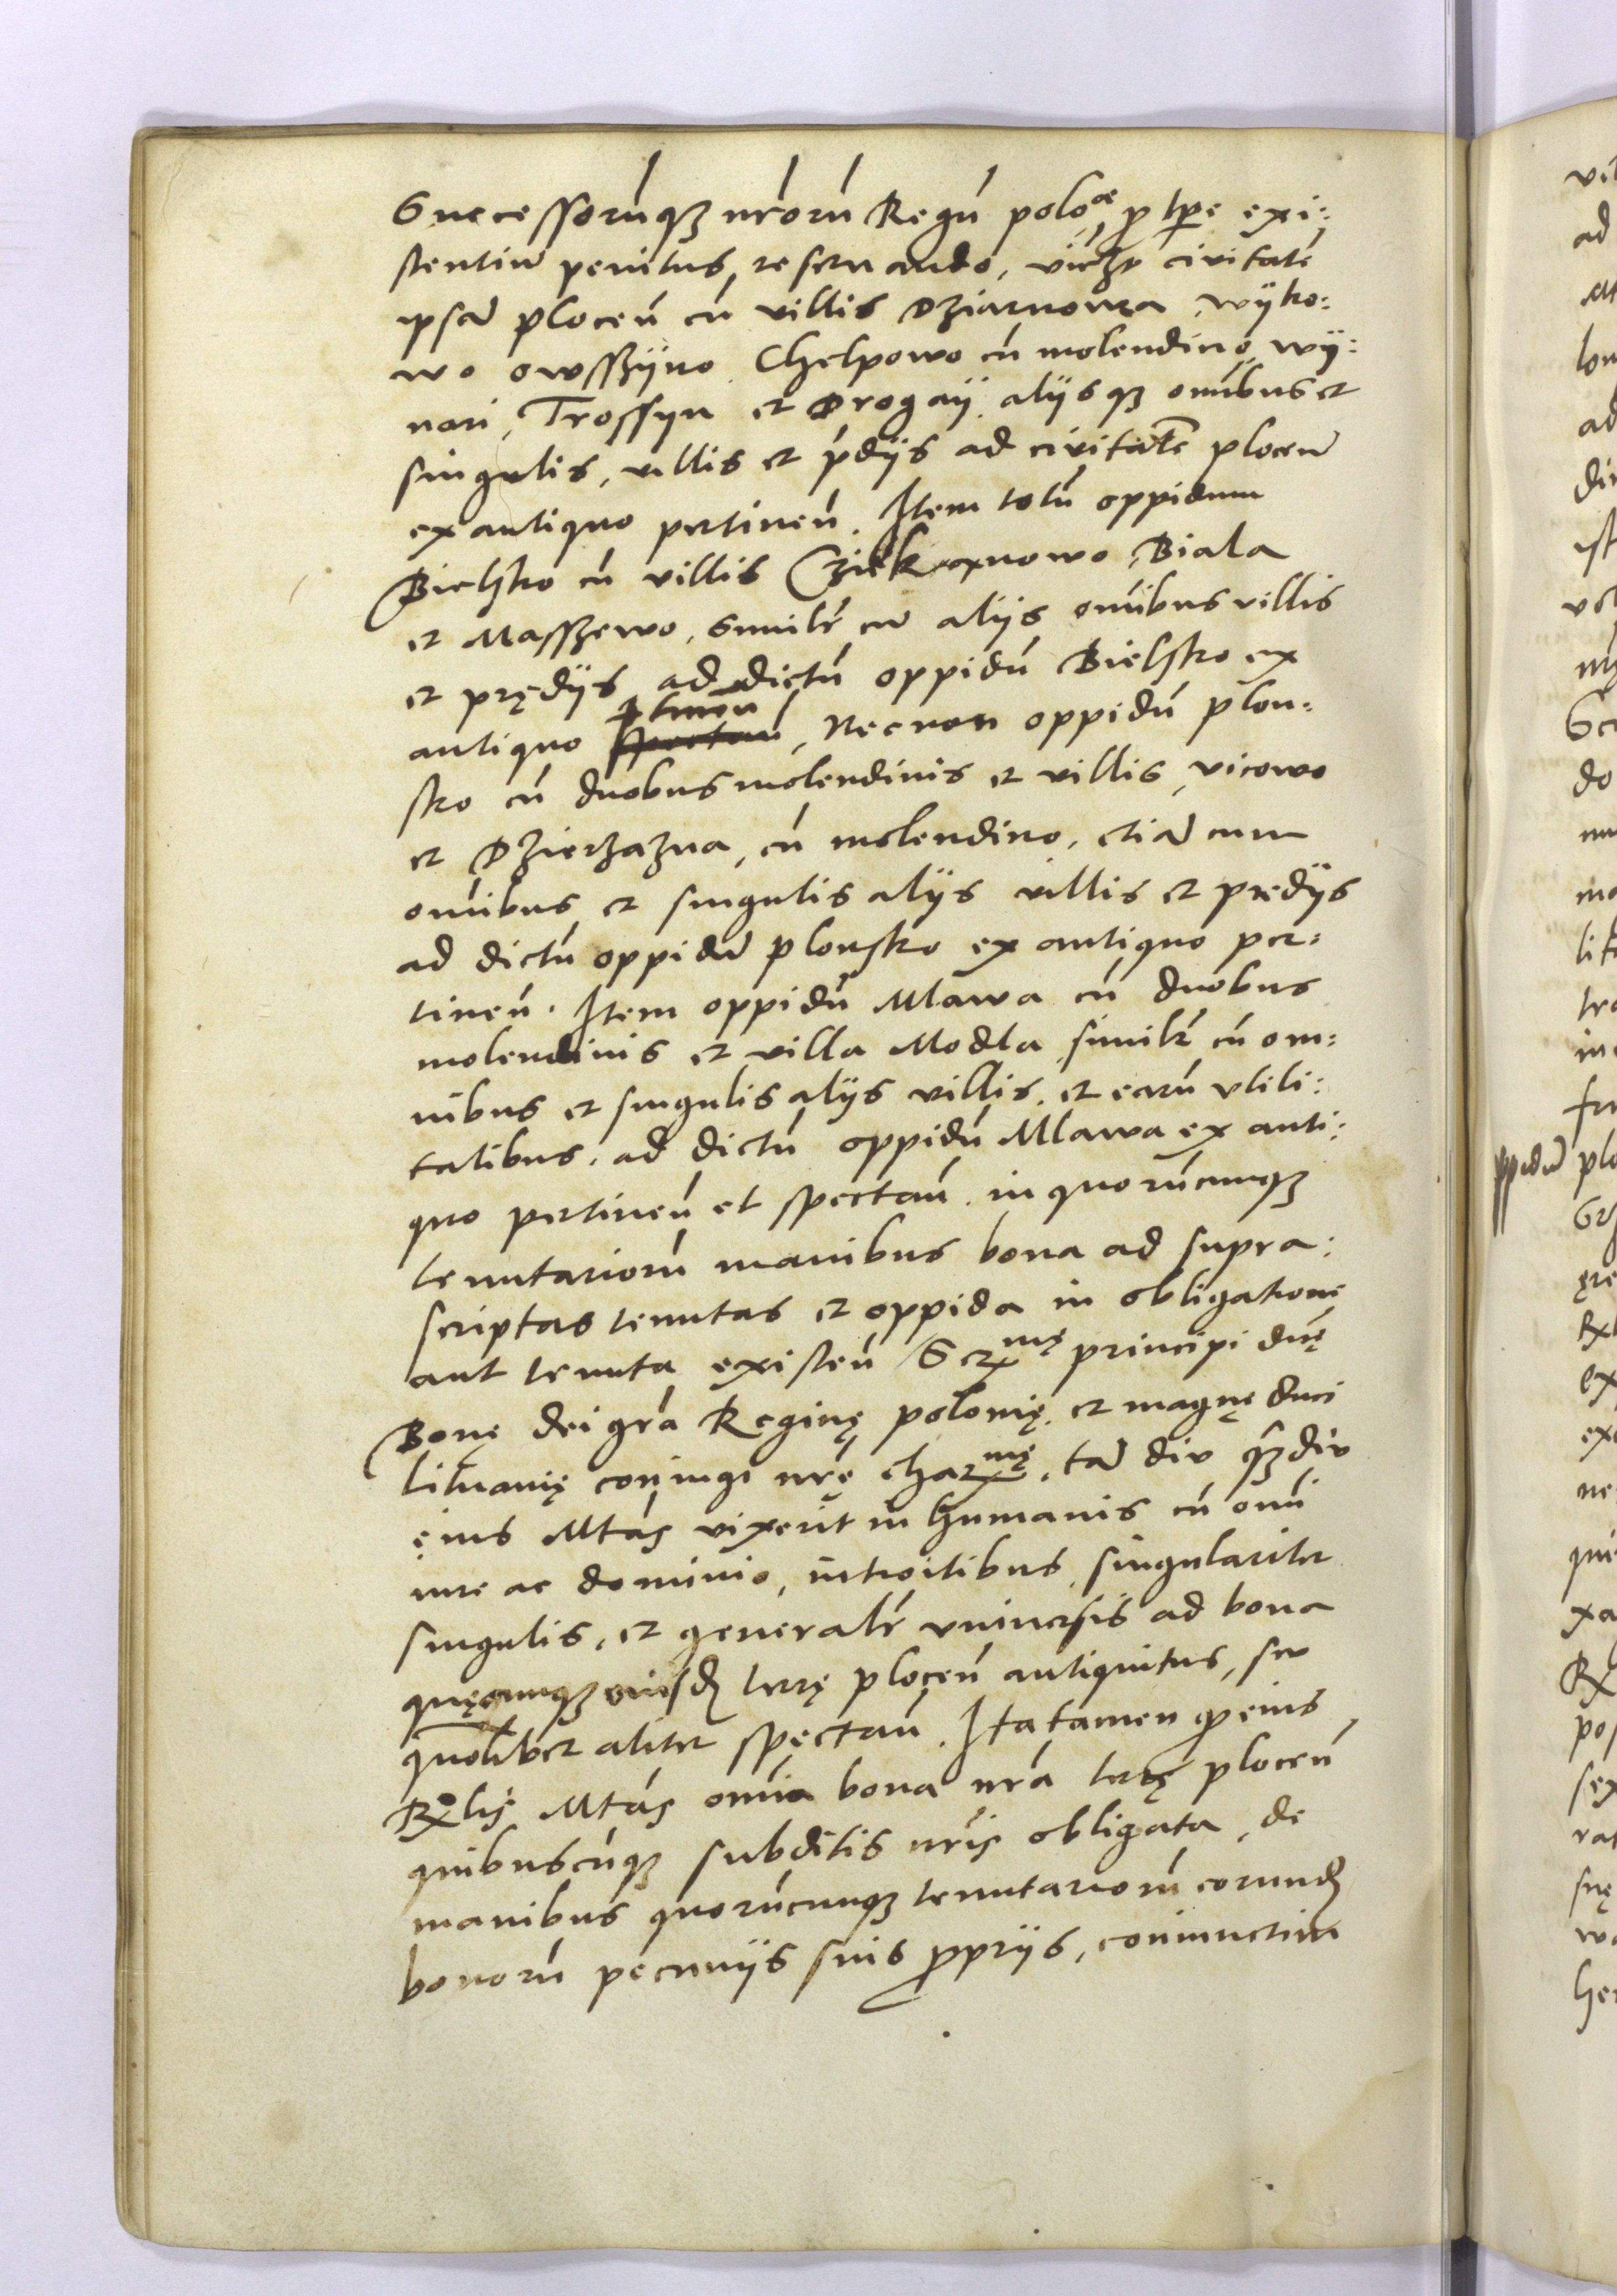 Successorūq₃ nr̄orū Regū polo^æ, ꝓ tp̄e exi:
stentiū penitus reseruando, vicz civitatē
ipsā plocen̄ cū villis Dziarnowa, wÿko:
wo owsszÿno Chelpowo cū molendino, wÿ:
nari, Trossyn et Drogaÿ, alÿsq₃ omībus et
singulis, villis et p̄dÿs ad civitatē plocen̄
ex antiquo pertinen̄. Item totū oppidum
Bielsko cū villis Cziekarnowo, Biala
et Masszewo, Similr̄ cū alÿs omībus villis
et prędÿs ad dictū oppidū Bielsko ex
antiquo ꝑtinen̄, Necnon oppidū plon:
sko cū duobus molendinis et villis, vicowo
et Dzierzazna, cū molendino, etiā cum
omībus et singulis alÿs villis et prędÿs
ad dictū oppidū plonsko ex antiquo per:
tinen̄. Item oppidū Mlawa cū duobus
molendinis et villa Modla similr̄ cū om:
nibus et singulis alÿs villis, et earū vtili:
tatibus, ad dictū oppidū Mlawa ex anti:
quo pertinen̄ et spectan̄. in quorūcunq₃
tenutariorū manibus bona ad supra:
scriptas tenutas et oppida in obligatione
aut tenuta existen̄ Ser^mę principi dn̄ę
Bonę dei gr̄a Reginę polonię, et magnę duci
lituanię coniugi nr̄ę char^mę, tā diu q̄₃diu
eius Mtās vixerit in humanis cū omī
iure ac dominio, introitibus, singulariter
singulis, et generalr̄ vniuersis ad bona
quęcunq₃ eiusd̄ terrę plocen̄ antiquitus, seu
quolibet aliter spectan̄. Ita tamen q̄ eius
R^lis Mtās omīa bona nr̄a terrę plocen̄
quibuscūq₃ subditis nr̄is obligata, de
manibus quorūcunq₃ tenutariorū eorund̄
bonorū pecunÿs suis ꝓprÿs, coniunctim